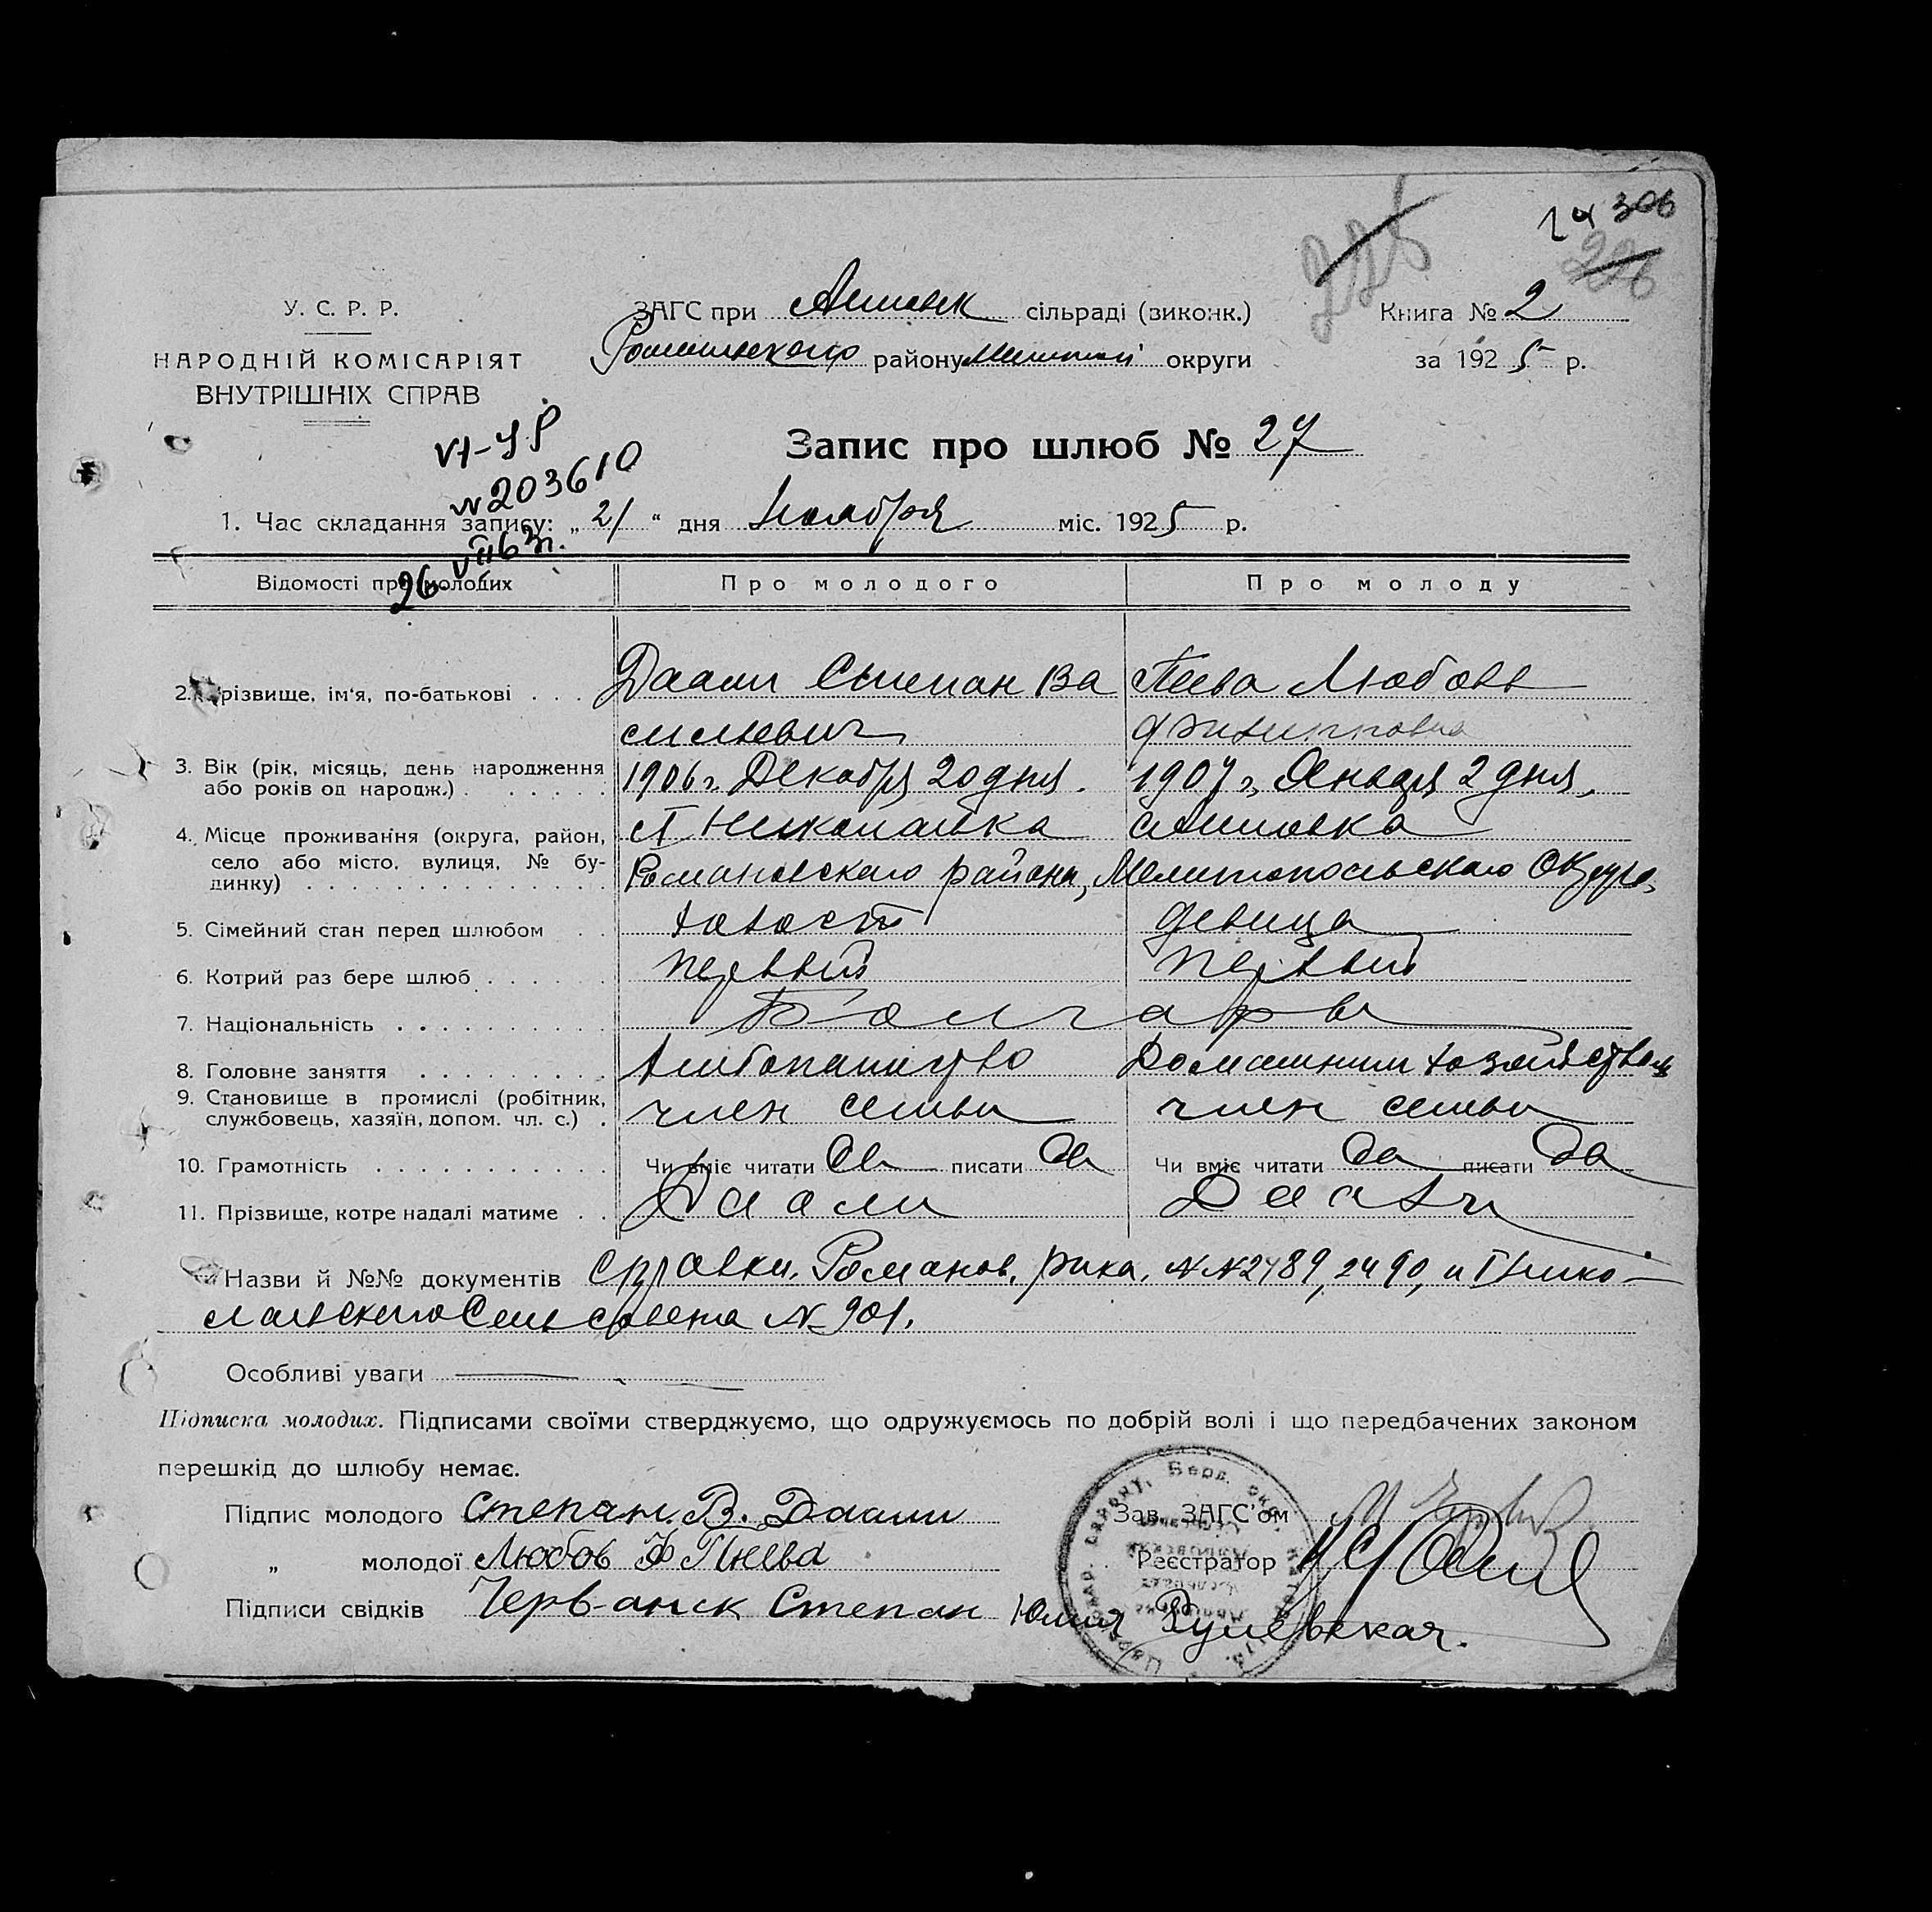 24 306
225
226
У. С. Р. Р.
НАРОДНІЙ КОМІСАРІЯТ
ВНУТРІШНІХ СПРАВ
ЗАГС при сільраді (виконк.)
району округи
Книга № 2
за 1925 р.
VI-УР
№203610
26 VII 63г.
Запис про шлюб № 27
1. Час складання запису: „21“ дня Ноября міс. 1925 р.
Відомості про молодих Про молодого Про молоду
2. Прізвище, ім'я, по-батькові . . . Даали Степан Ва Любовь
сильевич Филипповна
3. Вік (рік, місяць, день народження 1906 г. Декабря 20 дня. 1907 г. Января 2 дня.
або років од народж.) . . . . . .
4. Місце проживання (округа, район, Николаевка
село або місто, вулиця, № бу- Романовского района, Мелитопольского Округа,
динку) . . . . . . . . . . . . . .
5. Сімейний стан перед шлюбом . . холост девица
6. Котрий раз бере шлюб . . . . . . первый первый
7. Національність . . . . . . . . . . Болгары
8. Головне заняття . . . . . . . . . Хлебопашество Домашним хозяйством
9. Становище в промислі (робітник,
службовець, хазяїн, допом. чл. с.) . член семьи член семьи
10. Грамотність . . . . . . . . . . . Чи вміє читати да писати да Чи вміє читати да писати да
11. Прізвище, котре надалі матиме . . Даали Даали
Назви й №№ документів Справки. Романов. рика. №№2489, 2490, и Г Нико-
лаевского Сельсовета № 901.
Особливі уваги
Підписка молодих. Підписами своїми стверджуємо, що одружуємось по добрій волі і що передбачених законом
перешкід до шлюбу немає.
Підпис молодого Степан. В. Даали Зав. ЗАГС'ом
„ молодої Любов Ф Реєстратор
Підписи свідків Степан Юлия